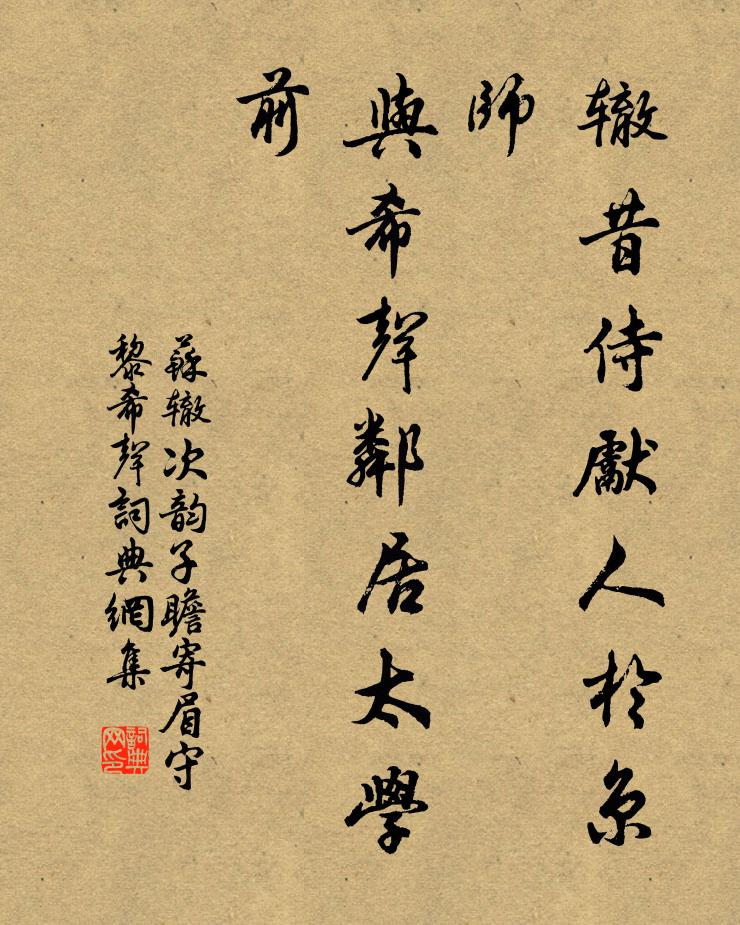 辙昔侍獻人於京
師
與希聲鄰居太學
前
蘇辙次韵子瞻寄眉守
黎希聲詞典網集
詞典
网印